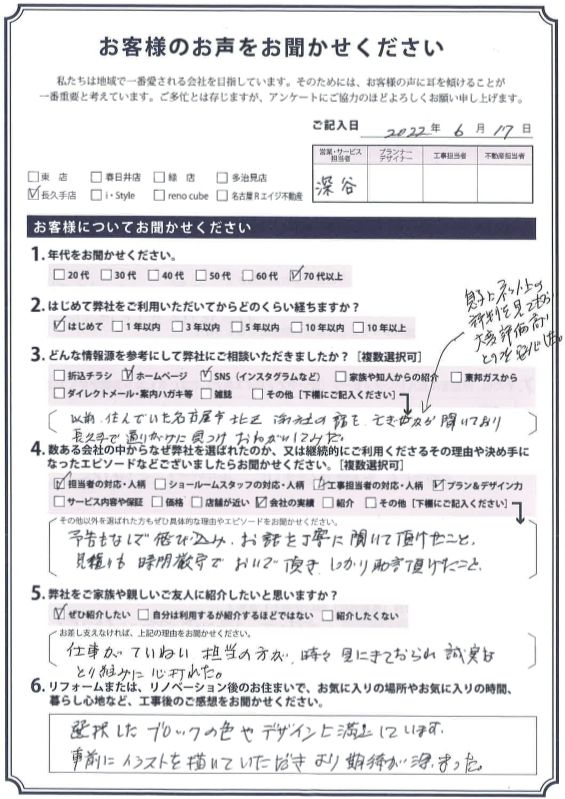 お客様のお声をお聞かせください
私たちは地域で一番愛される会社を目指しています。そのためには、お客様の声に耳を傾けることが
一番重要と考えています。ご多忙とは存じますが、アンケートにご協力のほどよろしくお願い申し上げます。
ご記入日 2022年 6月 17日
営業・サービス担当者 プランナーデザイナー 工事担当者 不動産担当者
深谷
□東 店 □春日井店 □緑 店 □多治見店
☑長久手店 □i・Style □reno cube □名古屋Rエイジ不動産
お客様についてお聞かせください
1. 年代をお聞かせください。
□20代 □30代 □40代 □50代 □60代 ☑70代以上
2. はじめて弊社をご利用いただいてからどのくらい経ちますか?
☑はじめて □1年以内 □3年以内 □5年以内 □10年以内 □10年以上
息子とネット上の
評判を見ても
大変評価高い
3. どんな情報源を参考にして弊社にご相談いただきましたか?[複数選択可]
□折込チラシ ☑ホームページ ☑SNS(インスタグラムなど) □家族や知人からの紹介 □東邦ガスから
□ダイレクトメール・案内ハガキ等 □雑誌 □その他[下欄にご記入ください]
以前、住んでいた名古屋市北区 御社の話を 聞いており
長久手で通りがかりに見つけ おねがいしてみた。
4. 数ある会社の中からなぜ弊社を選ばれたのか、又は継続的にご利用くださるその理由や決め手に
なったエピソードなどございましたらお聞かせください。[複数選択可]
☑担当者の対応・人柄 □ショールームスタッフの対応・人柄 ☑工事担当者の対応・人柄 ☑プラン&デザイン力
□サービス内容や保証 □価格 □店舗が近い ☑会社の実績 □紹介 □その他[下欄にご記入ください]
その他以外を選ばれた方もぜひ具体的な理由やエピソードをお聞かせください。
予告もなしで飛び込み、お話を丁寧に聞いて頂けたこと、
見積りも時間厳守でおいで頂き、しっかり助言頂けたこと、
5. 弊社をご家族や親しいご友人に紹介したいと思いますか?
☑ぜひ紹介したい □自分は利用するが紹介するほどではない □紹介したくない
お差し支えなければ、上記の理由をお聞かせください。
仕事がていねい 担当の方が、時々見にきておられ 誠実な
とり組みに心打れた。
6. リフォームまたは、リノベーション後のお住まいで、お気に入りの場所やお気に入りの時間、
暮らし心地など、工事後のご感想をお聞かせください。
選択したブロックの色やデザインに満足しています。
事前にイラストを描いていただき より期待が深まった。